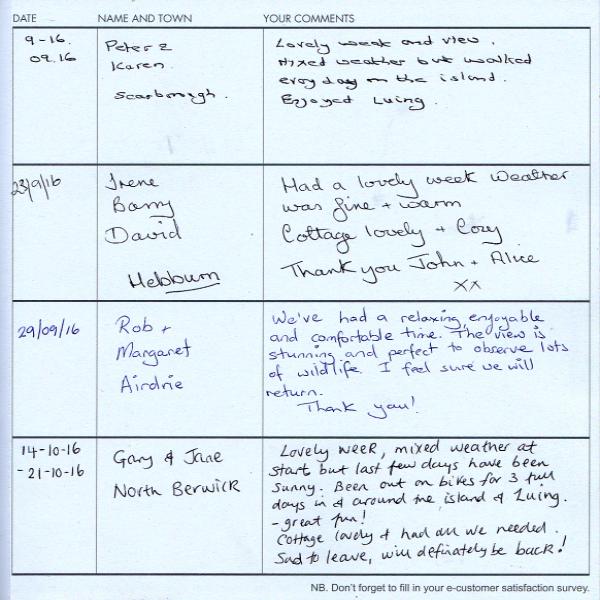 DATE NAME AND TOWN YOUR COMMENTS
9-16.
09.16
Peter &
Karen.
Scarborough.
Lovely week and view.
Mixed weather but walked
every day on the island.
Enjoyed Luing.
23/9/16
Irene
Barry
David
Hebburn
Had a lovely week Weather
was fine + warm
Cottage lovely + Cosy
Thank you John + Alice
xx
29/09/16
Rob +
Margaret
Airdrie
We've had a relaxing, enjoyable
and comfortable time. The view is
stunning and perfect to observe lots
of wildlife. I feel sure we will
return.
Thank you!
14-10-16
- 21-10-16
Gary & Jane
North Berwick
Lovely week, mixed weather at
start but last few days have been
sunny. Been out on bikes for 3 full
days in & around the island & Luing.
- great fun!
Cottage lovely & had all we needed.
Sad to leave, will definately be back!
NB. Don't forget to fill in your e-customer satisfaction survey.